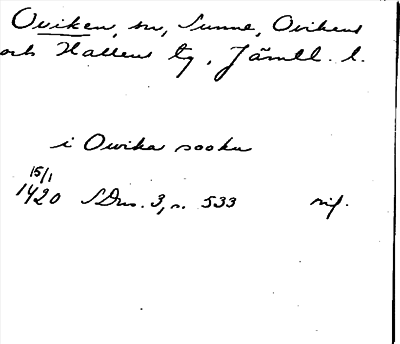 Oviken, sn, Sunne, Ovikens
och Hallens tg, Jämtl. l.
i Owika sookn
15/1
1420 SDns. 3, s. 533 avf.